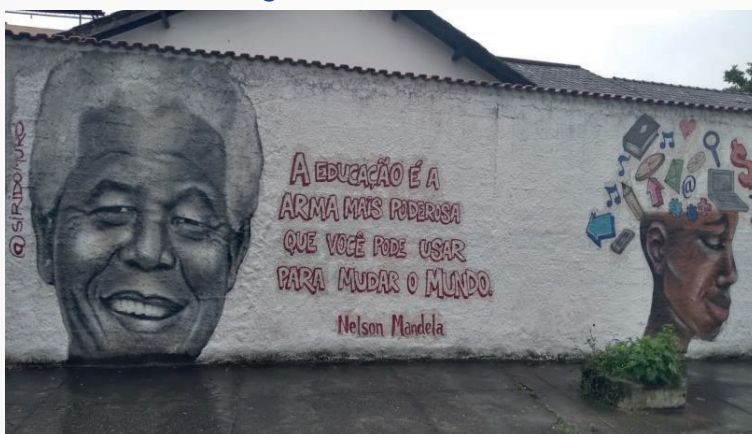 @SIRIDOMURO
A EDUCAÇÃO É A
ARMA MAIS PODEROSA
QUE VOCÊ PODE USAR
PARA MUDAR O MUNDO.
Nelson Mandela